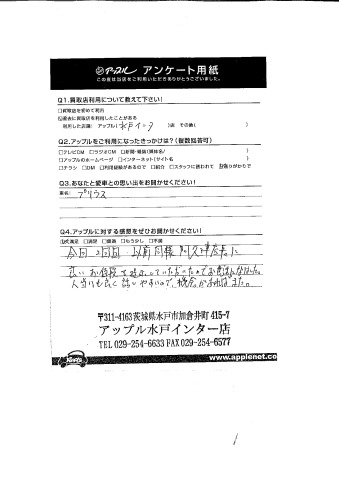 アップル アンケート用紙
この度は当店をご利用いただきありがとうございました。
Q1.買取店利用について教えて下さい!
□買取店を初めて利用
☑過去に買取店を利用したことがある
利用した店舗: アップル( 水戸インター )店 その他( )
Q2.アップルをご利用になったきっかけは?(複数回答可)
□テレビCM □ラジオCM □新聞・雑誌(媒体名/ )
□アップルのホームページ □インターネット(サイト名 )
□チラシ □DM □利用経験があるので □紹介 □スタッフに誘われて ☑通りがかりで
Q3.あなたと愛車との思い出をお聞かせください!
車名: プリウス
Q4.アップルに対する感想をぜひお聞かせください!
☑大満足 □満足 □普通 □もう少し □不満
今回2回目 以前同様
良い お値段を
人当りも良く 話しやすいので、
〒311-4163茨城県水戸市加倉井町 415-7
アップル水戸インター店
TEL 029-254-6633 FAX 029-254-6577
www.applenet.co